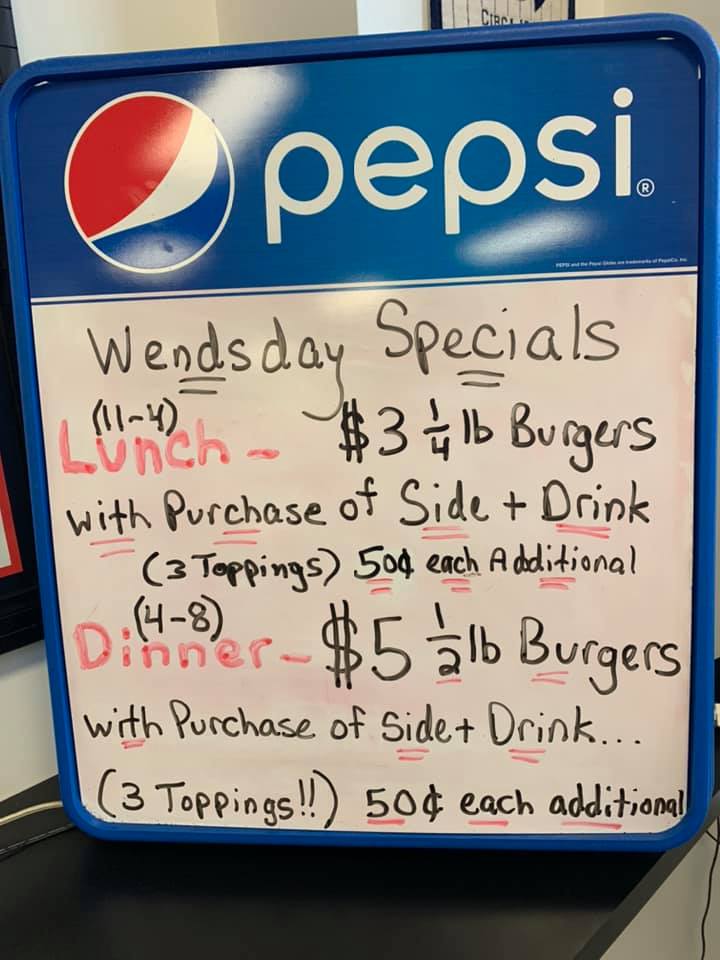 CIRCA
pepsi®
PEPSI and the Pepsi Globe are trademarks of PepsiCo, Inc.
Wendsday Specials
(11-4)
Lunch - $3 1/4 lb Burgers
with Purchase of Side + Drink
(3 Toppings) 50¢ each Additional
(4-8)
Dinner - $5 1/2 lb Burgers
with Purchase of Side + Drink...
(3 Toppings!!) 50¢ each additional